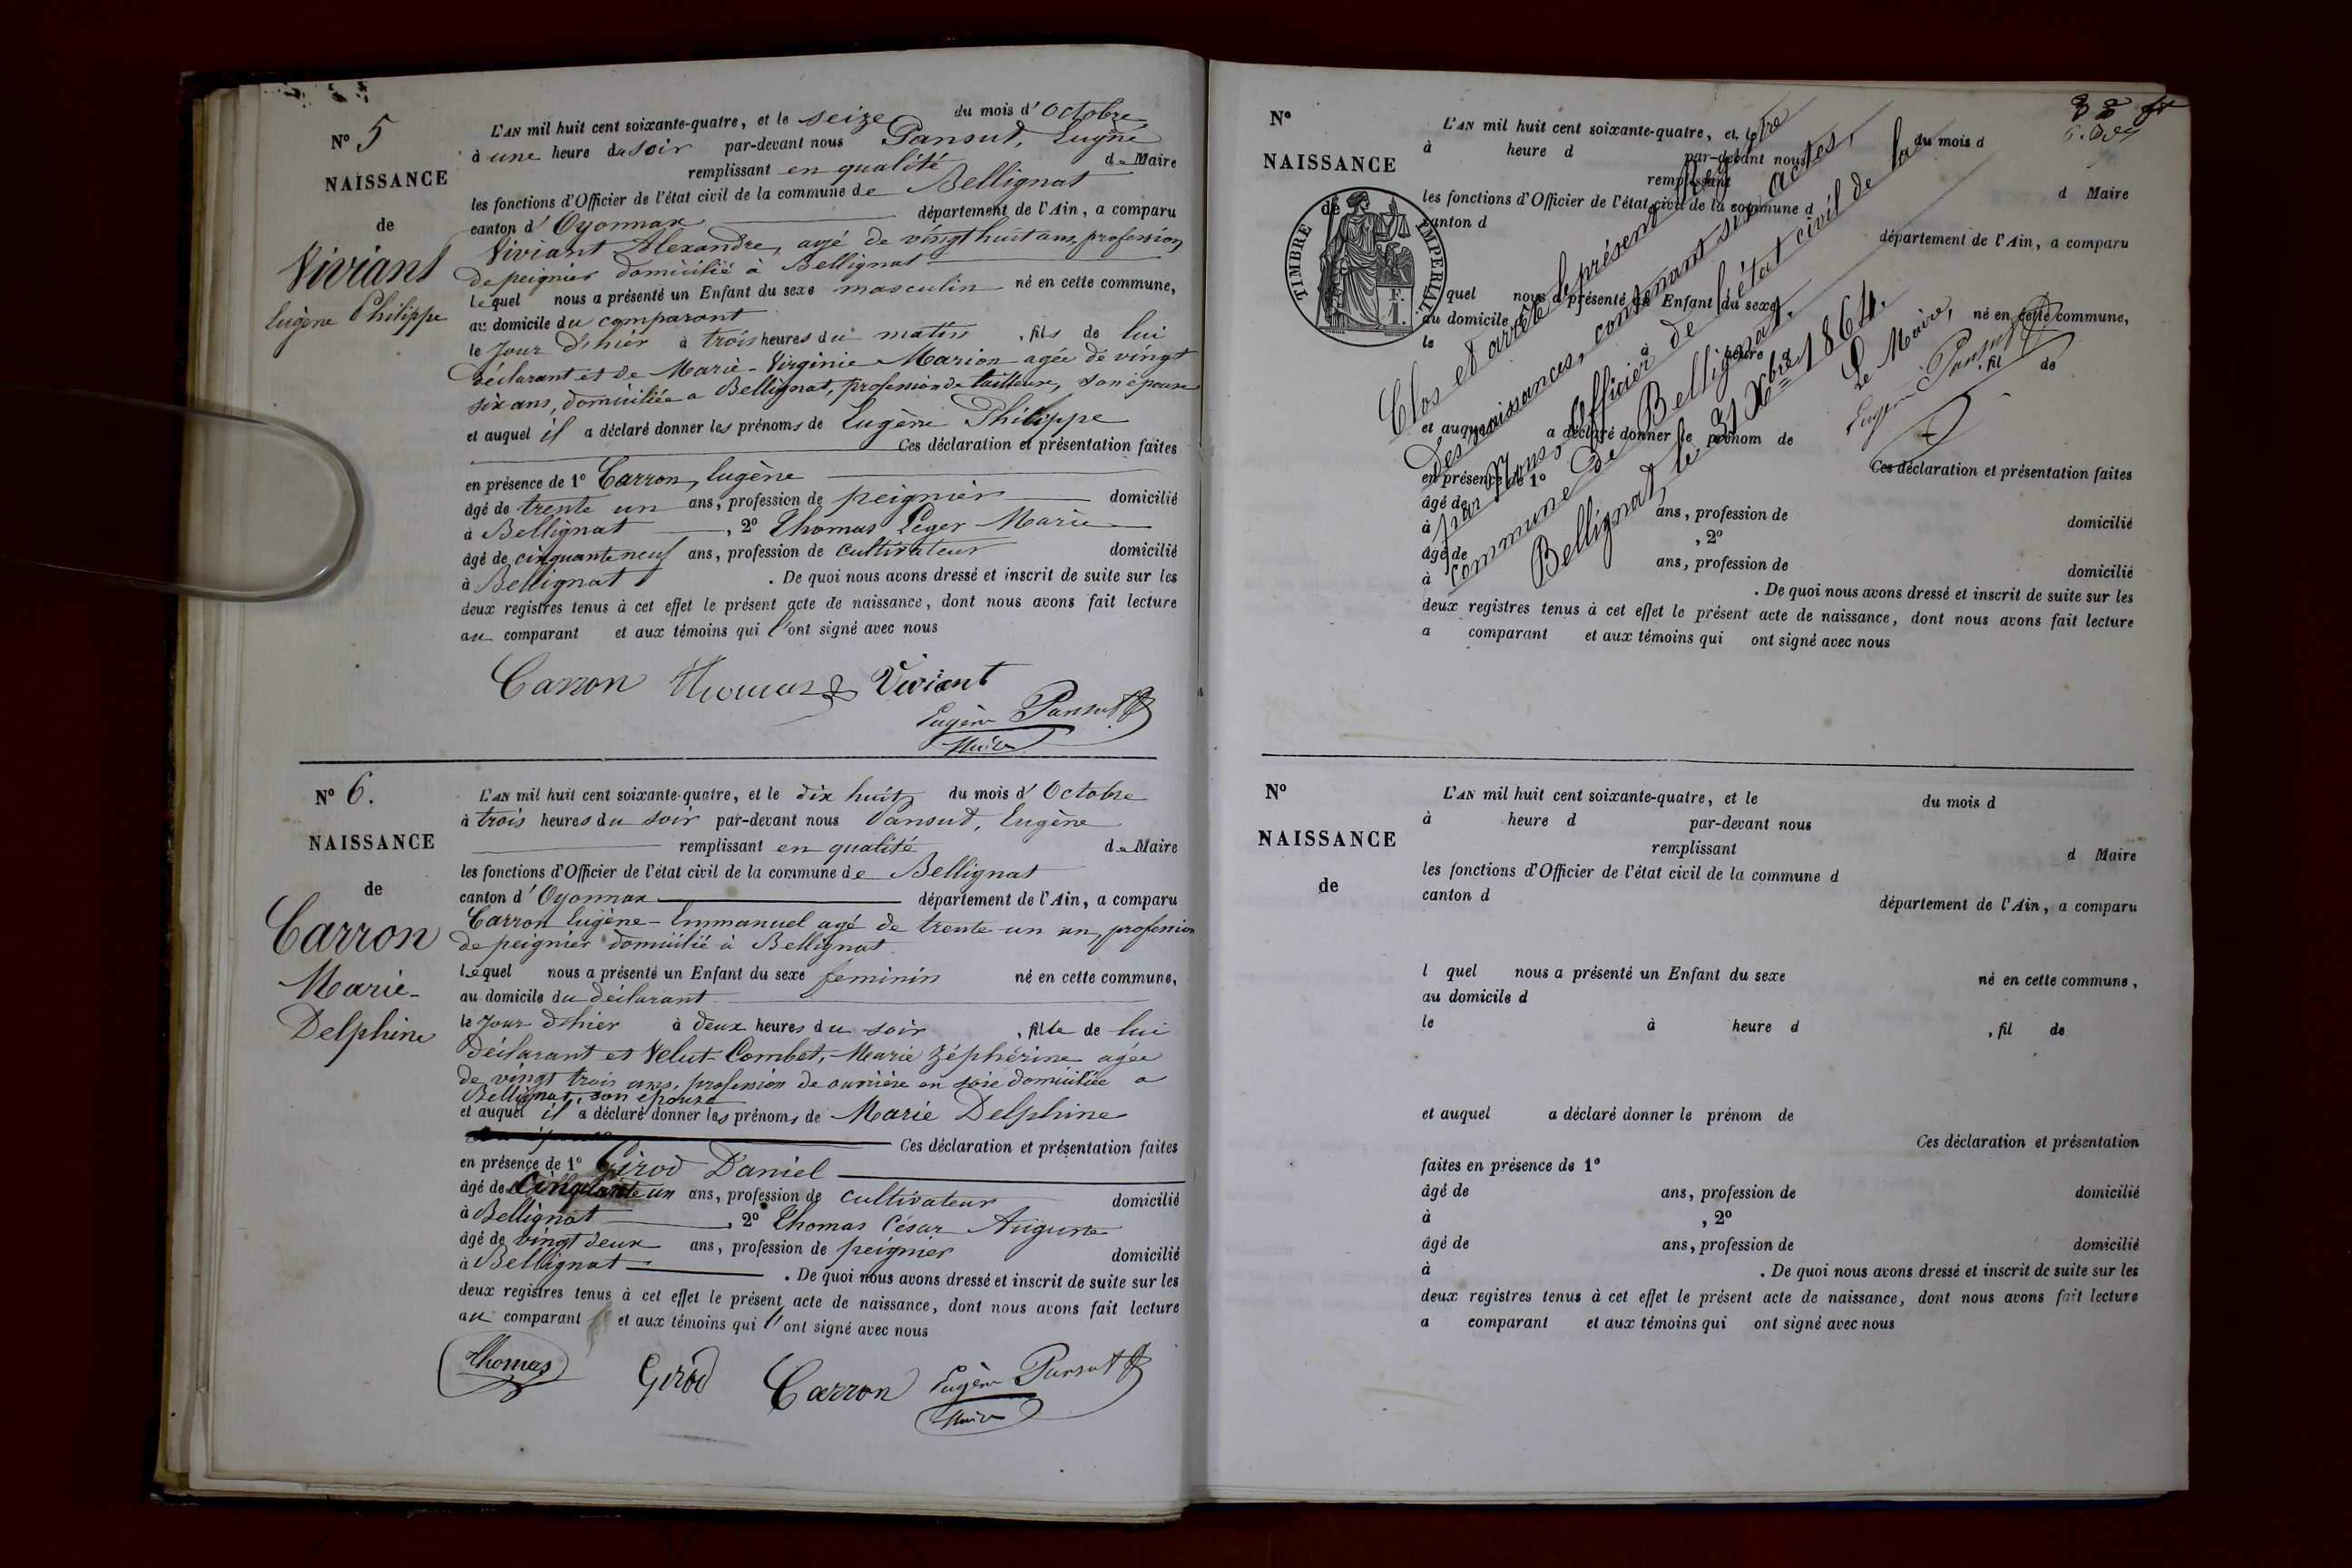 N° 5
NAISSANCE
de
Viviant
Eugène Philippe
L'AN mil huit cent soixante-quatre, et le seize du mois d'Octobre
à une heure du soir par-devant nous Pansut, Eugène
remplissant en qualité de Maire
les fonctions d'Officier de l'état civil de la commune de Bellignat
canton d'Oyonnax département de l'Ain, a comparu
Viviant Alexandre, agé de vingt huit ans, profession
de peignier domicilié à Bellignat
lequel nous a présenté un Enfant du sexe masculin né en cette commune,
au domicile du comparant
le jour d'hier à trois heures du matin, fils de lui
déclarant et de Marie-Virginie Marion agée de vingt
six ans, domiciliée a Bellignat, profession de tailleuse, son épouse
et auquel il a déclaré donner les prénoms de Eugène Philippe
Ces déclaration et présentation faites
en présence de 1° Carron, Eugène
âgé de trente un ans, profession de peignier domicilié
à Bellignat, 2° Thomas Leger Marie
âgé de cinquante neuf ans, profession de cultivateur domicilié
à Bellignat. De quoi nous avons dressé et inscrit de suite sur les
deux registres tenus à cet effet le présent acte de naissance, dont nous avons fait lecture
au comparant et aux témoins qui l'ont signé avec nous
Carron Thomas Viviant
Eugène Pansut
Maire
N° 6.
NAISSANCE
de
Carron
Marie-
Delphine
L'AN mil huit cent soixante-quatre, et le dix huit du mois d'Octobre
à trois heures du soir par-devant nous Pansut, Eugène
remplissant en qualité de Maire
les fonctions d'Officier de l'état civil de la commune de Bellignat
canton d'Oyonnax département de l'Ain, a comparu
Carron Eugène-Emmanuel agé de trente un an, profession
de peignier domicilié à Bellignat.
lequel nous a présenté un Enfant du sexe feminin né en cette commune,
au domicile du déclarant
le jour d'hier à deux heures du soir, fille de lui
déclarant et Velut-Combet, Marie Zéphérine agée
de vingt trois ans, profession de ouvrière en soie domiciliée a
Bellignat, son épouse
et auquel il a déclaré donner les prénoms de Marie Delphine
Ces déclaration et présentation faites
en présence de 1° Girod Daniel
âgé de cinquante un ans, profession de cultivateur domicilié
à Bellignat, 2° Thomas César Auguste
âgé de vingt deux ans, profession de peignier domicilié
à Bellignat. De quoi nous avons dressé et inscrit de suite sur les
deux registres tenus à cet effet le présent acte de naissance, dont nous avons fait lecture
au comparant et aux témoins qui l'ont signé avec nous
Thomas Girod Carron Eugène Pansut
Maire
N°
NAISSANCE
de
TIMBRE IMPERIAL
L'AN mil huit cent soixante-quatre, et le du mois d
à heure d par-devant nous
remplissant d Maire
les fonctions d'Officier de l'état civil de la commune d
canton d département de l'Ain, a comparu
l quel nous a présenté un Enfant du sexe né en cette commune,
au domicile d
le à heure d, fil de
et auquel a déclaré donner le prénom de
Ces déclaration et présentation faites
en présence de 1°
âgé de ans, profession de domicilié
à, 2°
âgé de ans, profession de domicilié
à. De quoi nous avons dressé et inscrit de suite sur les
deux registres tenus à cet effet le présent acte de naissance, dont nous avons fait lecture
a comparant et aux témoins qui ont signé avec nous
Clos et arrêté le présent registre
des naissances, contenant six actes,
par Nous, Officier de l'état civil de la
commune de Bellignat.
Bellignat, le 31 Xbre 1864.
Le Maire,
Eugène Pansut
N°
NAISSANCE
de
L'AN mil huit cent soixante-quatre, et le du mois d
à heure d par-devant nous
remplissant d Maire
les fonctions d'Officier de l'état civil de la commune d
canton d département de l'Ain, a comparu
l quel nous a présenté un Enfant du sexe né en cette commune,
au domicile d
le à heure d, fil de
et auquel a déclaré donner le prénom de
Ces déclaration et présentation
faites en présence de 1°
âgé de ans, profession de domicilié
à, 2°
âgé de ans, profession de domicilié
à. De quoi nous avons dressé et inscrit de suite sur les
deux registres tenus à cet effet le présent acte de naissance, dont nous avons fait lecture
a comparant et aux témoins qui ont signé avec nous